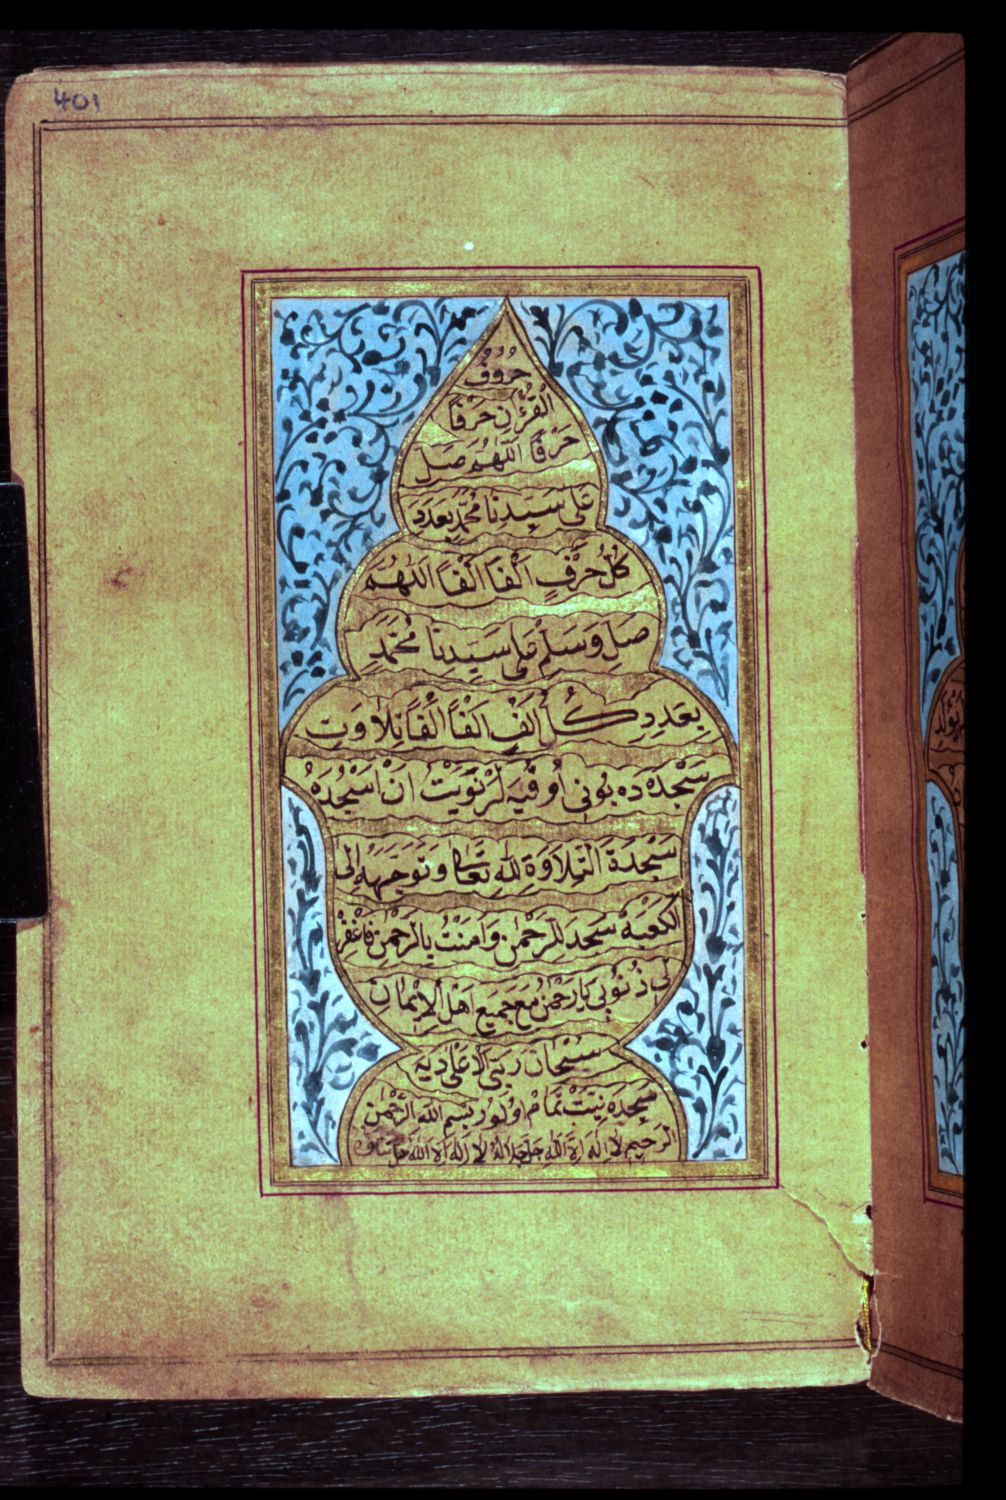 401
حُرُوْفِ
الْقُرْاٰنِ حَرْفًا
حَرْفًا اَللّٰهُمَّ صَلِّ
عَلٰى سَيِّدِنَا مُحَمَّدٍ بِعَدَدِ
كُلِّ حَرْفٍ اَلْفًا اَلْفًا اَللّٰهُمَّ
صَلِّ وَسَلِّمْ عَلٰى سَيِّدِنَا مُحَمَّدٍ
بِعَدَدِ كُلِّ اَلْفٍ اَلْفًا اَلْفًا تِلَاوَتِ
سَجْدَه دَه بُونى اُوقيَه لَرْ نَوَيْتُ اَنْ اَسْجُدَ
سَجْدَةَ التِّلَاوَةِ لِلّٰهِ تَعَالٰى وَ تَوَجَّهْ اِلٰى
الْكَعْبَةِ سَجَدَ لِلرَّحْمٰنِ وَاٰمَنْتُ بِالرَّحْمٰنِ فَاغْفِرْ
لٖى ذُنُوبٖى يَا رَحْمٰنُ مَعَ جَمِيعِ اَهْلِ الْاِيْمَانِ
سُبْحَانَ رَبِّىَ الْاَعْلٰى دِيَه
سَجْدَه نِيَّتْ تَمَامْ اُولُورْ بِسْمِ اللّٰهِ الرَّحْمٰنِ
الرَّحِيمِ لَا اِلٰهَ اِلَّا اللّٰهُ جَلَّ جَلَالُهُ لَا اِلٰهَ اِلَّا اللّٰهُ